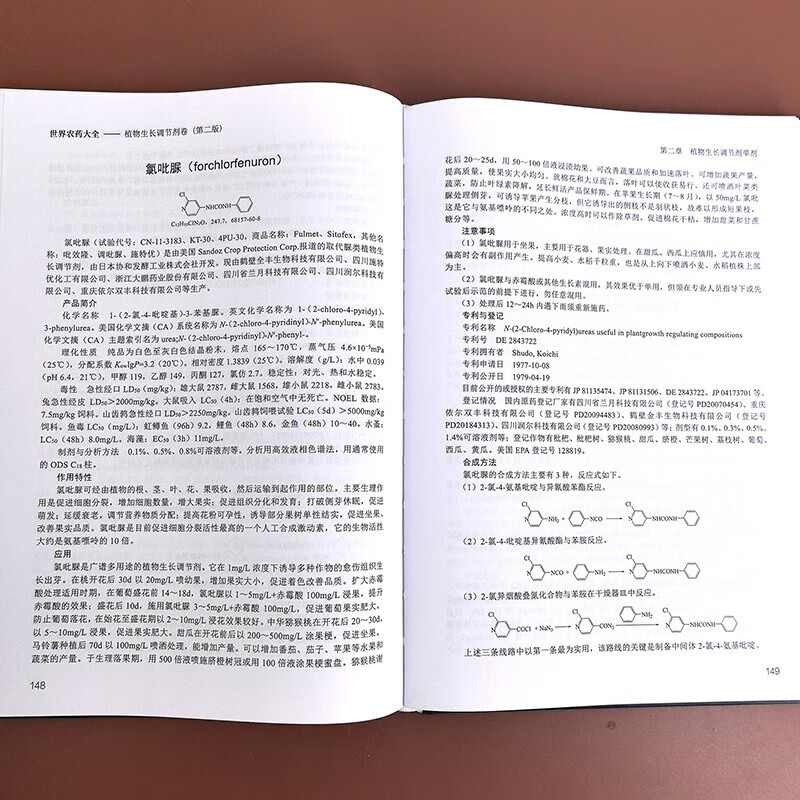 世界农药大全 —— 植物生长调节剂卷（第二版）
氯吡脲（forchlorfenuron）
Cl
N
NHCONH
C₁₂H₁₀ClN₃O，247.7，68157-60-8
氯吡脲（试验代号：CN-11-3183、KT-30、4PU-30，商品名称：Fulmet、Sitofex，其他名
称：吡效隆、调吡脲、施特优）是由美国 Sandoz Crop Protection Corp.报道的取代脲类植物生
长调节剂，由日本协和发酵工业株式会社开发。现由鹤壁全丰生物科技有限公司、四川施特
优化工有限公司、浙江大鹏药业股份有限公司、四川省兰月科技有限公司、四川润尔科技有
限公司、重庆依尔双丰科技有限公司等生产。
产品简介
化学名称 1-(2-氯-4-吡啶基)-3-苯基脲。英文化学名称为 1-(2-chloro-4-pyridyl)-
3-phenylurea。美国化学文摘（CA）系统名称为 N-(2-chloro-4-pyridinyl)-N'-phenylurea。美国
化学文摘（CA）主题索引名为 urea;N-(2-chloro-4-pyridinyl)-N'-phenyl-。
理化性质 纯品为白色至灰白色结晶粉末，熔点 165～170℃，蒸气压 4.6×10⁻⁵mPa
（25℃），分配系数 KowlgP=3.2（20℃），相对密度 1.3839（25℃）。溶解度（g/L）：水中 0.039
（pH 6.4，21℃），甲醇 119，乙醇 149，丙酮 127，氯仿 2.7。稳定性：对光、热和水稳定。
毒性 急性经口 LD₅₀（mg/kg）：雄大鼠 2787，雌大鼠 1568，雄小鼠 2218，雌小鼠 2783。
兔急性经皮 LD₅₀＞2000mg/kg。大鼠吸入 LC₅₀（4h）：在饱和空气中无死亡。NOEL 数据：
7.5mg/kg 饲料。山齿鹑急性经口 LD₅₀＞2250mg/kg。山齿鹑饲喂试验 LC₅₀（5d）＞5000mg/kg
饲料。鱼毒 LC₅₀（mg/L）：虹鳟鱼（96h）9.2，鲤鱼（48h）8.6，金鱼（48h）10～40。水蚤：
LC₅₀（48h）8.0mg/L。海藻：EC₅₀（3h）11mg/L。
制剂与分析方法 0.1%、0.5%、0.8%可溶液剂等。分析用高效液相色谱法，用通常使用
的 ODS C₁₈柱。
作用特性
氯吡脲可经由植物的根、茎、叶、花、果吸收，然后运输到起作用的部位。主要生理作
用是促进细胞分裂，增加细胞数量，增大果实；促进组织分化和发育；打破侧芽休眠，促进
萌发；延缓衰老，调节营养物质分配；提高花粉可孕性，诱导部分果树单性结实，促进坐果、
改善果实品质。氯吡脲是目前促进细胞分裂活性最高的一个人工合成激动素，它的生物活性
大约是氨基嘌呤的 10 倍。
应用
氯吡脲是广谱多用途的植物生长调节剂。它在 1mg/L 浓度下诱导多种作物的愈伤组织生
长出芽。在桃开花后 30d 以 20mg/L 喷幼果，增加果实大小，促进着色改善品质。扩大赤霉
酸处理适用时期，在葡萄盛花前 14～18d，氯吡脲以 1～5mg/L+赤霉酸 100mg/L 浸果，提升
赤霉酸的效果；盛花后 10d，施用氯吡脲 3～5mg/L+赤霉酸 100mg/L，促进葡萄果实肥大。
防止葡萄落花，在始花至盛花期以 2～10mg/L 浸花效果较好。中华猕猴桃在开花后 20～30d，
以 5～10mg/L 浸果，促进果实肥大。甜瓜在开花前后以 200～500mg/L 涂果梗，促进坐果。
马铃薯种植后 70d 以 100mg/L 喷洒处理，能增加产量。可以增加番茄、茄子、苹果等水果和
蔬菜的产量。于生理落果期，用 500 倍液喷施脐橙树冠或用 100 倍液涂果梗蜜盘。猕猴桃谢
148
第二章 植物生长调节剂单剂
花后 20～25d，用 50～100 倍液浸渍幼果。可改善蔬果品质和加速落叶。可增加蔬果产量，
提高质量，使果实大小均匀。就棉花和大豆而言，落叶可以使收获易行。还可喷洒叶菜类
蔬菜，防止叶绿素降解，延长鲜活产品保鲜期。在苹果生长期（7～8 月），以 50mg/L 氯吡
脲处理侧芽，可诱导苹果产生分枝，但它诱导出的侧枝不是羽状枝，故难以形成短果枝，
这是它与氨基嘌呤的不同之处。浓度高时可以作除草剂。促进棉花干枯，增加甜菜和甘蔗
糖分等。
注意事项
（1）氯吡脲用于坐果，主要用于花器、果实处理。在甜瓜、西瓜上应慎用，尤其在浓度
偏高时会有副作用产生。提高小麦、水稻千粒重，也是从上向下喷洒小麦、水稻植株上部
为主。
（2）氯吡脲与赤霉酸或其他生长素混用，其效果优于单用，但须在专业人员指导下或先
试验后示范的前提下进行，勿任意混用。
（3）处理后 12～24h 内遇下雨须重新施药。
专利与登记
专利名称 N-(2-Chloro-4-pyridyl)ureas useful in plantgrowth regulating compositions
专利号 DE 2843722
专利拥有者 Shudo, Koichi
专利申请日 1977-10-08
专利公开日 1979-04-19
目前公开的或授权的主要专利有 JP 81135474、JP 81131506、DE 2843722、JP 04173701 等。
登记情况 国内原药登记厂家有四川省兰月科技有限公司（登记号 PD20070454）、重庆
依尔双丰科技有限公司（登记号 PD20094483）、鹤壁全丰生物科技有限公司（登记号
PD20184313）、四川润尔科技有限公司（登记号 PD20080993）等；剂型有 0.1%、0.3%、0.5%、
1.4%可溶液剂等；登记作物有枇杷、枇杷树、猕猴桃、甜瓜、脐橙、芒果树、荔枝树、葡萄、
西瓜、黄瓜。美国 EPA 登记号 128819。
合成方法
氯吡脲的合成方法主要有 3 种，反应式如下。
（1）2-氯-4-氨基吡啶与异氰酸苯酯反应。
Cl N NH₂ + NCO → Cl N NHCONH
（2）2-氯-4-吡啶基异氰酸酯与苯胺反应。
Cl N NCO + NH₂ → Cl N NHCONH
（3）2-氯异烟酰叠氮化合物与苯胺在干燥器皿中反应。
Cl N COCl + NaN₃ → Cl N CON₃ NH₂ → Cl N NHCONH
上述三条线路中以第一条最为实用，该路线的关键是制备中间体 2-氯-4-氨基吡啶。
149